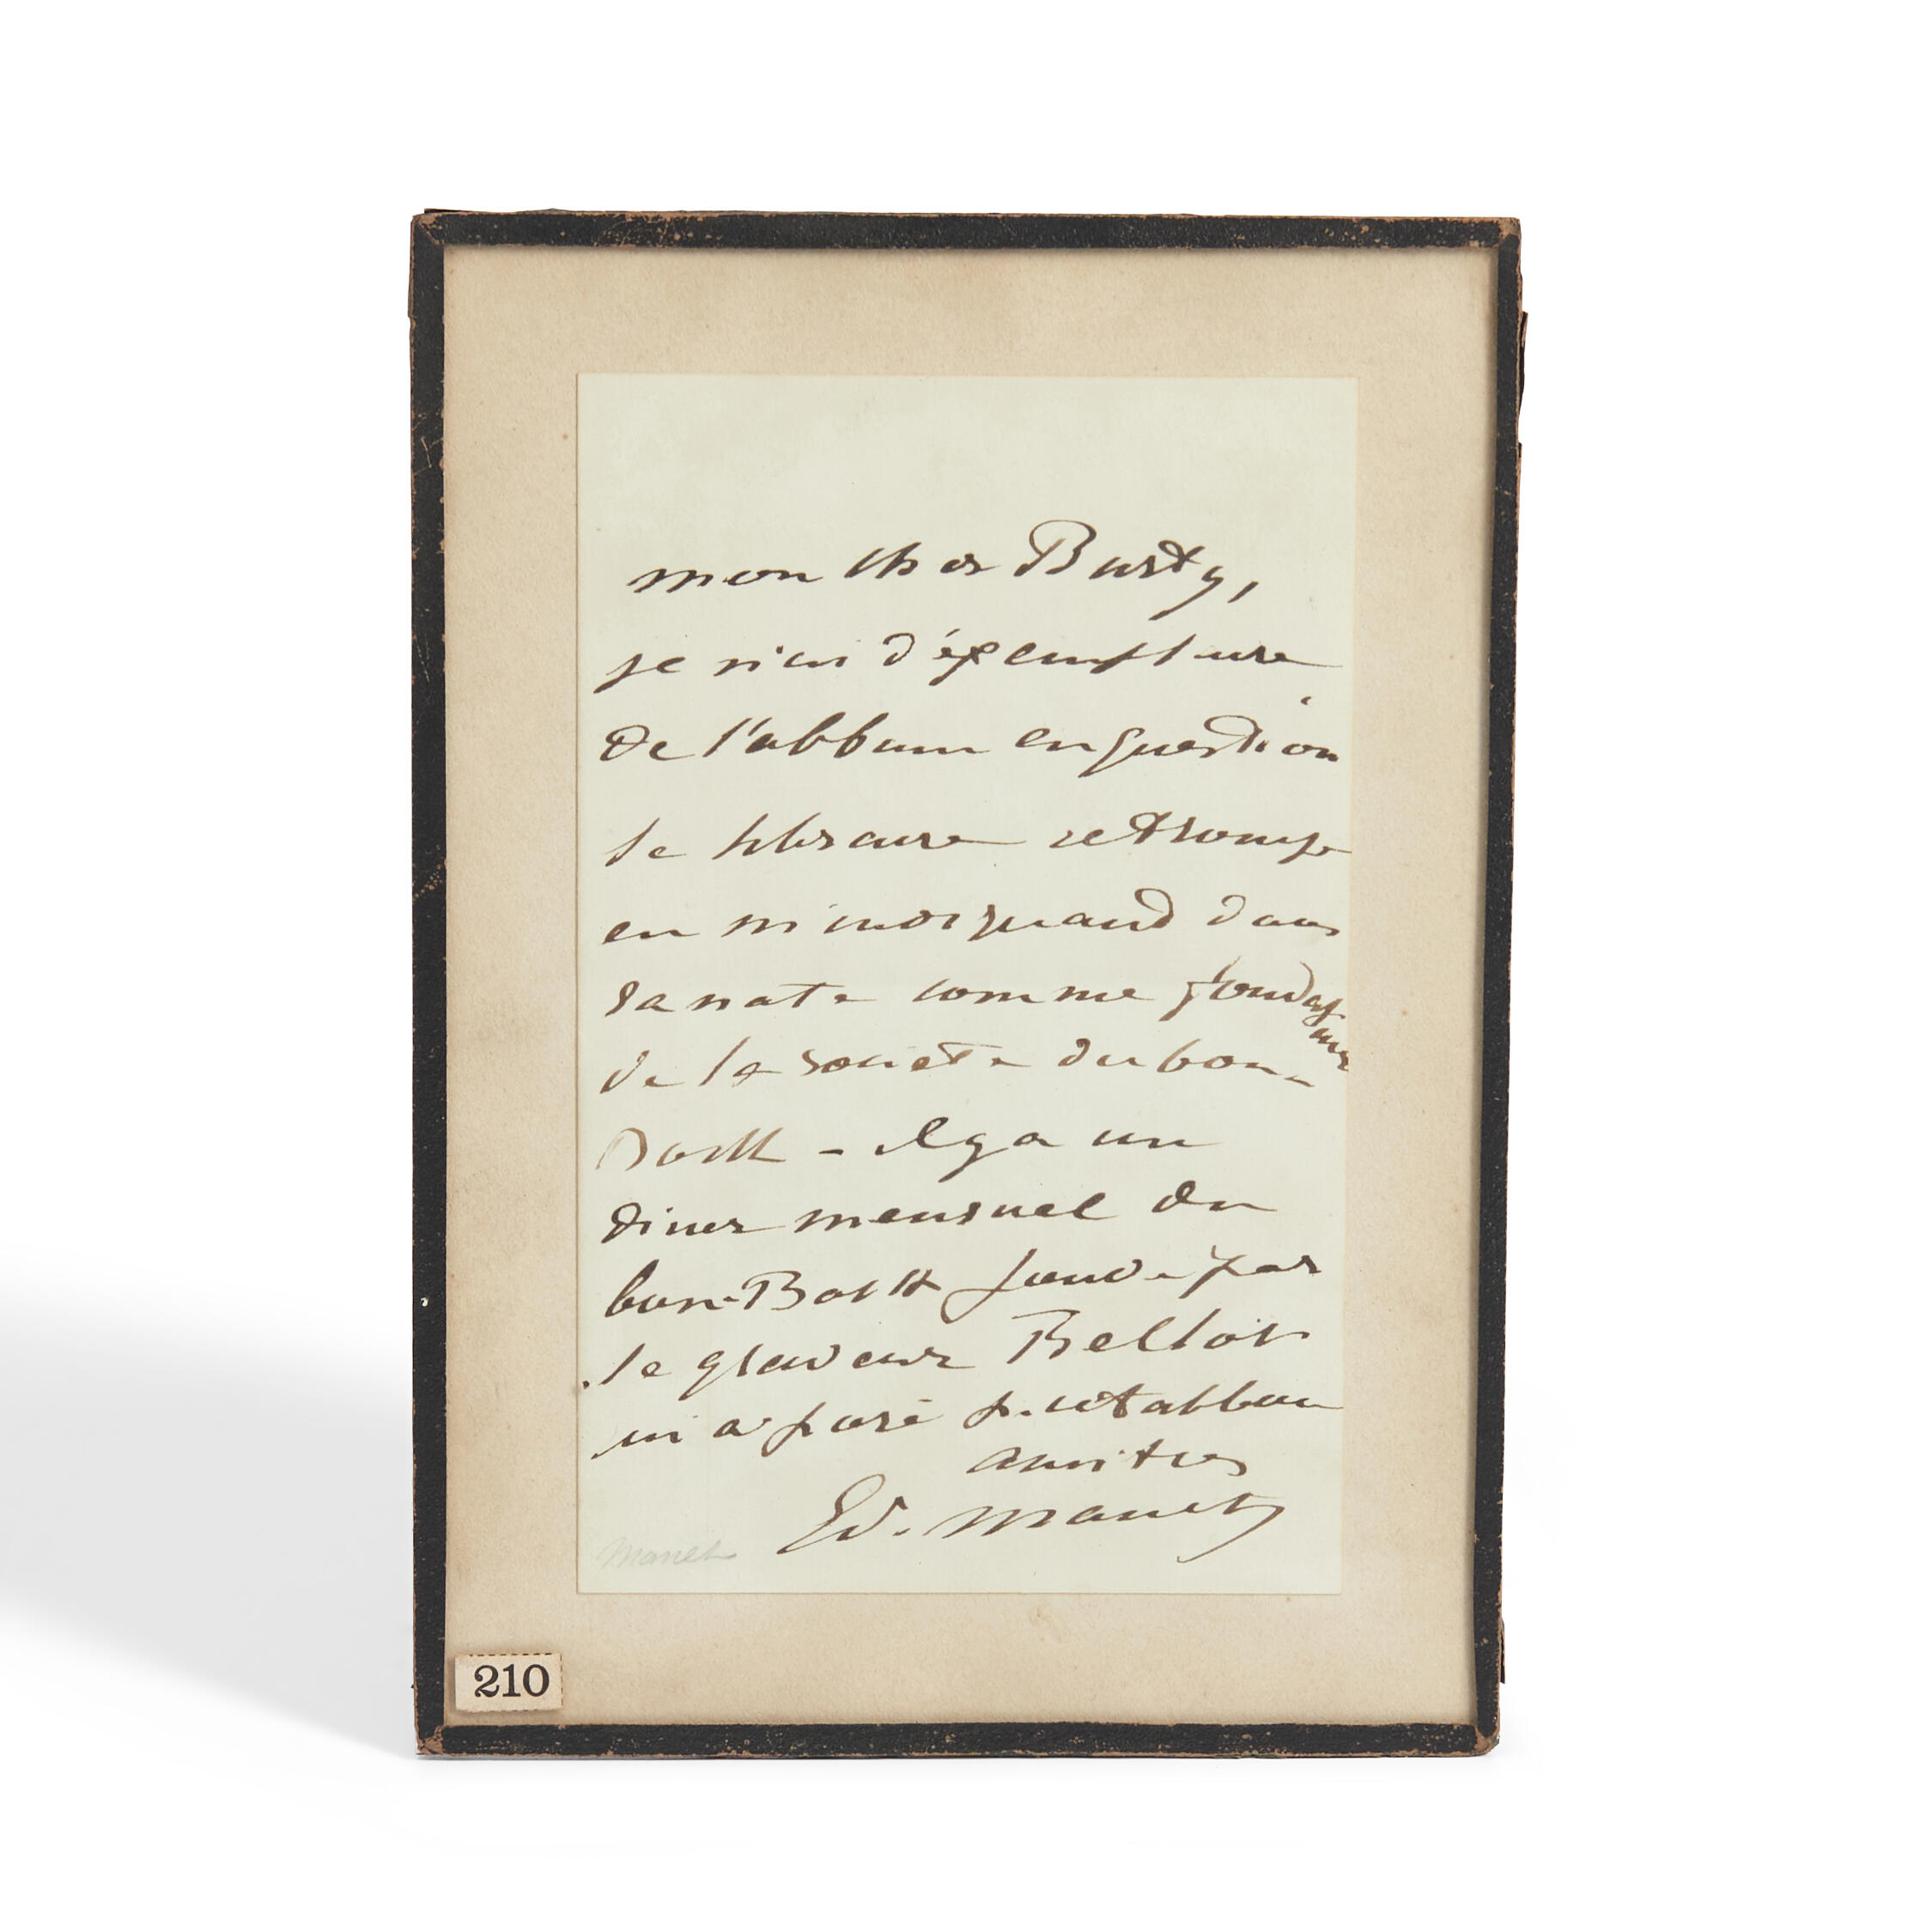 mon cher Burty,
je n'ai d'éxemplaire
de l'album en question
le libraire se trompe
en m'indiquant dans
sa note comme
de la société du bon-
Bock - il y a un
diner mensuel du
bon-Bock fondé par
le graveur Bellot
qui a posé p. cet album
amitiés
Ed. Manet
Manet
210